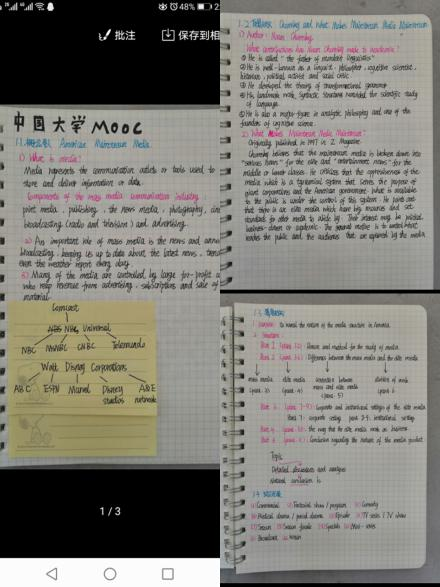 48%
批注
保存到相
中国大学MOOC
1.1 American Mainstream Media
1) What is media?
Media represents the communication outlets or tools used to
store and deliver information or data.
Components of the mass media communication including:
print media, publishing, the news media, photography, cin
broadcasting (radio and television) and advertising.
2) An important role of mass media is the news and
broadcasting, keeping us up to date about the latest news,
even the weather report every day.
3) Many of the media are controlled by large for-profit
who reap revenue from advertising, subscriptions and sale of
material.
Comcast
NBC Universal
NBC MSNBC CNBC Telemundo
Walt Disney Corporations
ABC ESPN Marvel Disney A&E
studios networks
1 / 3
1.2 Chomsky and What Makes Mainstream Media Mainstream
1) Author: Noam Chomsky
What contributions has Noam Chomsky made to academia?
① He is called "the father of modern linguistics"
② He is well-known as a linguist, philosopher, cognitive scientist,
historian, political activist and social critic.
③ He developed the theory of transformational grammar
④ His landmark work, Syntactic Structures the scientific study
of language.
⑤ He is also a major figure in analytic philosophy and one of the
founders of cognitive science.
2) What Makes Mainstream Media Mainstream?
Originally published in 1997 in Z Magazine
Chomsky believes that the mainstream media is broken down into
for the elite and "entertainment news" for the
middle or lower classes. He criticizes that the oppressiveness of the
media which is a system that serves the purpose of
giant corporations and the American government. What is available
to the public is under the control of this system. He points out
that there is an elite media which have big resources and set
standards for other media to abide by. Their interest may be political,
business-driven or academic. The general motive is to control what
reaches the public and the audiences that are exposed by the media.
1.3
1. to reveal the nature of the media structure in America.
2. Structure:
Part 1 (para. 1-2): Reason and method for the study of media.
Part 2 (para. 3-6): Difference between the mass media and the elite media
mass media elite media connection between division of work
(para. 3) (para. 4) mass and elite media (para. 6)
(para. 5)
Part 3 (para. 7-9): Corporate and institutional settings of the elite media
Part 4 the way that the elite media work as business
Part 5 Conclusion regarding the nature of the media product
Topic
Detailed discussion and analysis
Natural conclusion
1.4
Commercial Factorial show / program Comedy
Medical drama / period drama Episode TV series / TV show
Season Season finale Spinoffs Mini-series
Broadcast